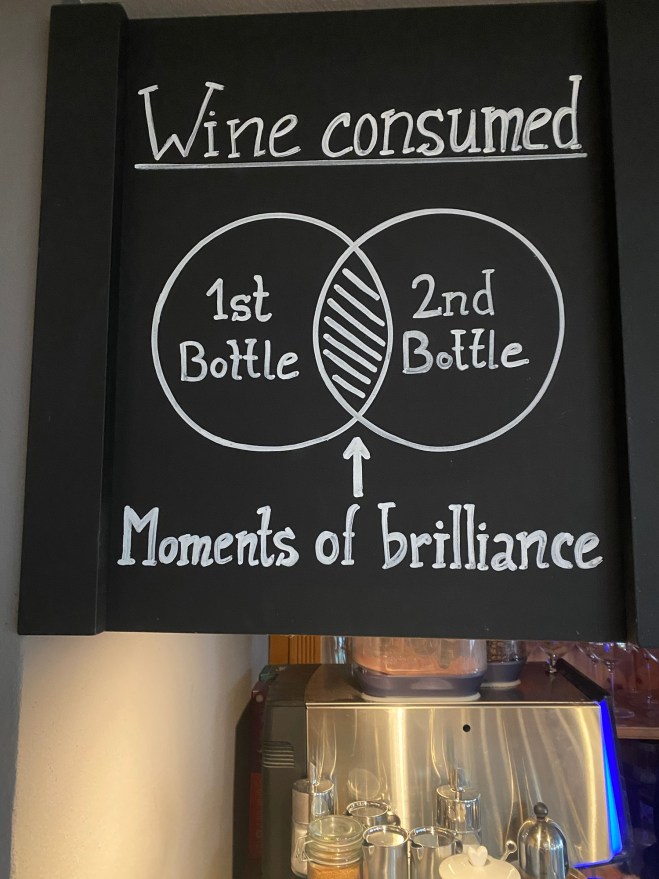 Wine consumed
1st
Bottle
2nd
Bottle
Moments of brilliance